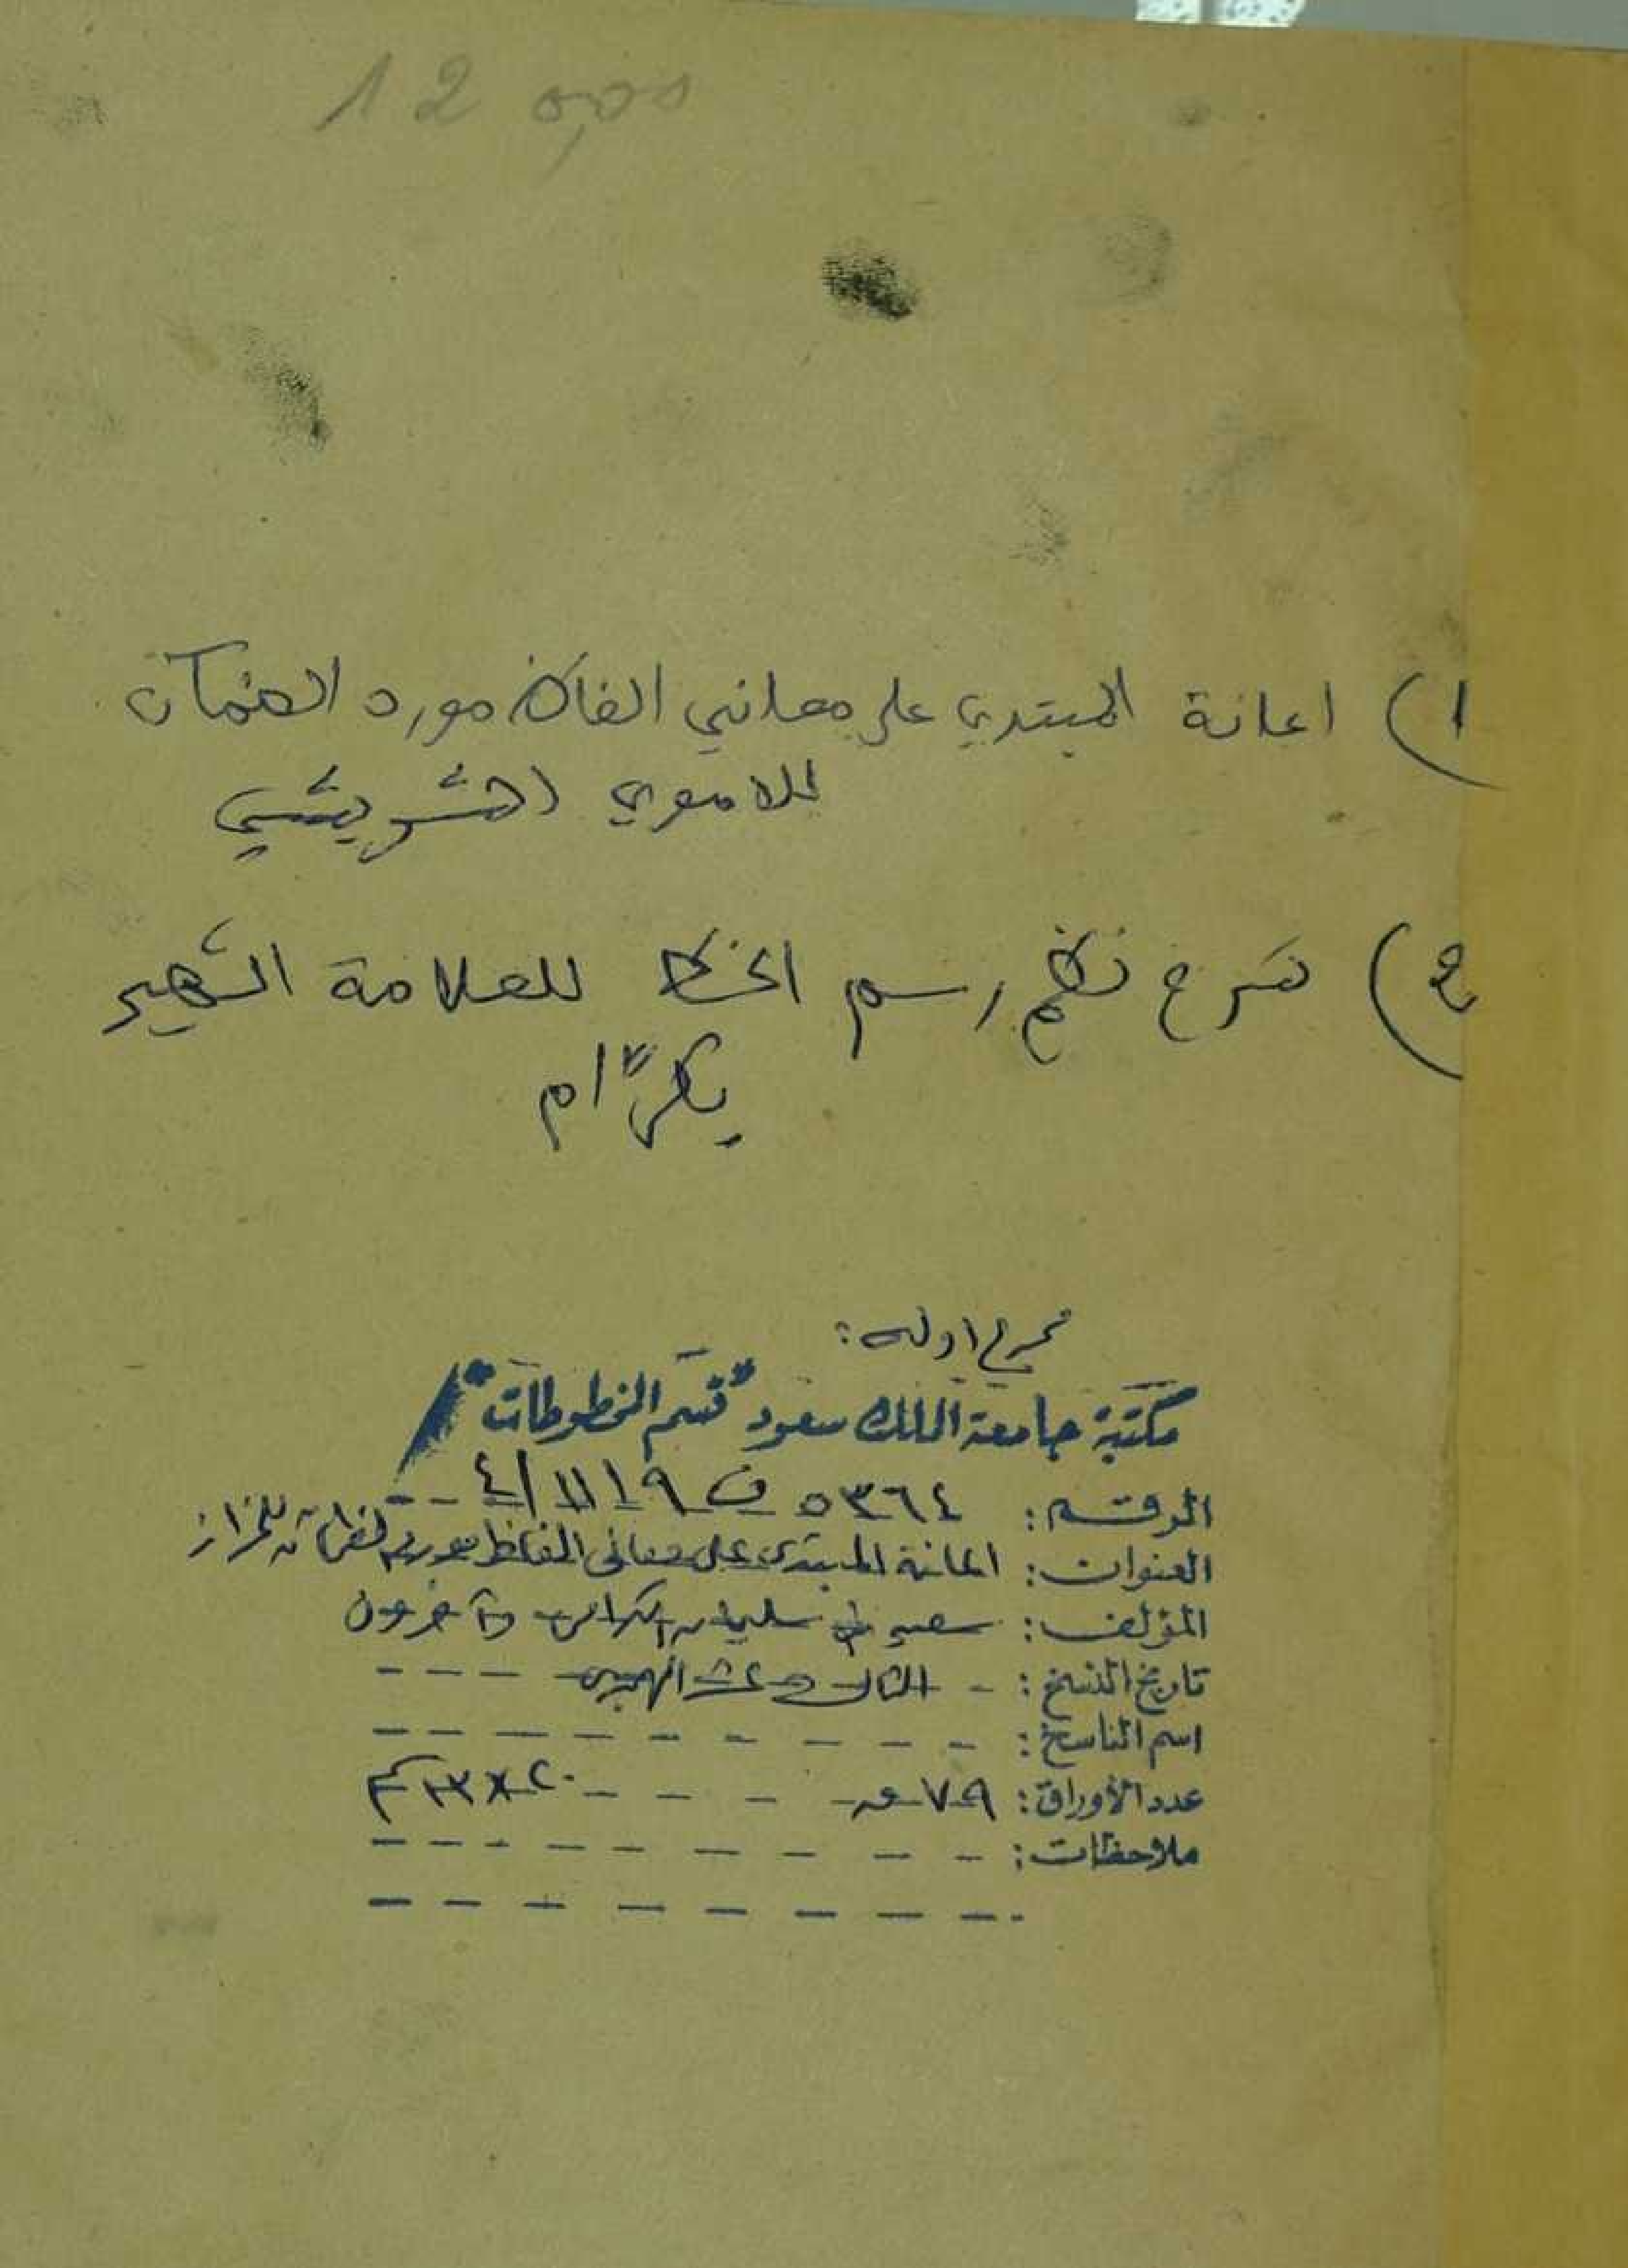 12 0,00
1) اعانة المبتدي على معاني الفاظ مورد الضمآن
للاموي الشريشي
2) شرح نظم رسم الخط للعلامة الشهير
بكرّام
مكتبة جامعة الملك سعود "قسم المخطوطات"
الرقم: ٥٣٦٤ ف ١١١٩/٤
العنوان: اعانة المبتدى على معانى الفاظ مورد الضمآن للخراز
المؤلف: سعيد بن سليمان الكرامى وآخرون
تاريخ النسخ: الثانى عشر الهجرى
اسم الناسخ:
عدد الأوراق: ٧٩ ق ٢٠×٢٣ سم
ملاحظات: